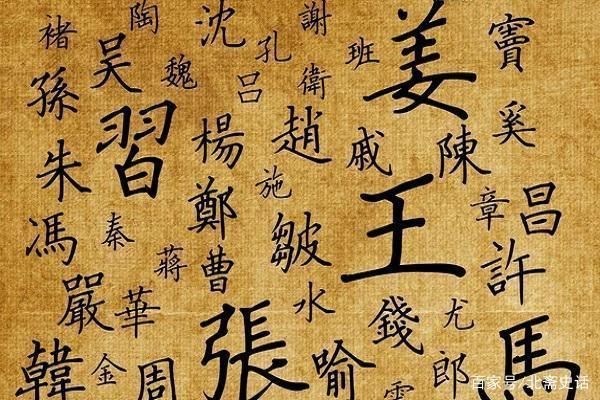 褚 陶 沈 孔 謝 班 姜 竇
孫 吳 魏 呂 衛 奚
朱 習 楊 趙 戚 陳
馮 秦 鄭 施 皺 王 章 昌
嚴 華 蔣 曹 水 錢 尤 許
韓 金 周 張 喻 郎 馬
百家号/北斋史话